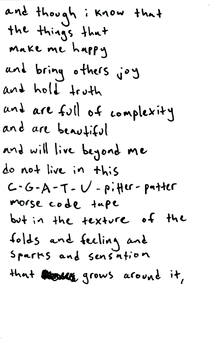 and though i know that
the things that
make me happy
and bring others joy
and hold truth
and are full of complexity
and are beautiful
and will live beyond me
do not live in this
C-G-A-T-U-pitter-patter
morse code tape
but in the texture of the
folds and feeling and
sparks and sensation
that grows around it,